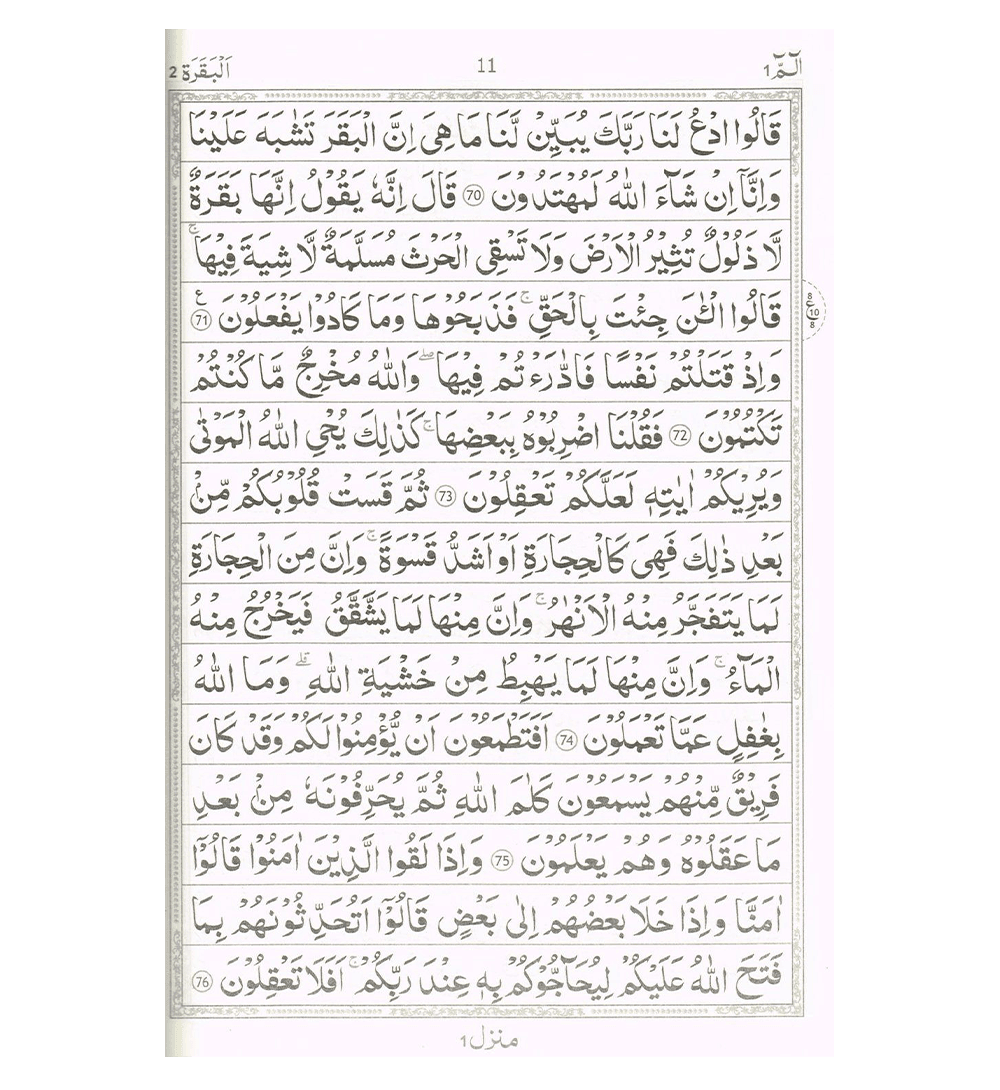 الٓمّٓ 1
11
اَلْبَقَرَة 2
قَالُوا ادْعُ لَنَا رَبَّكَ يُبَيِّنْ لَّنَا مَا هِىَ اِنَّ الْبَقَرَ تَشٰبَهَ عَلَيْنَا
وَاِنَّآ اِنْ شَآءَ اللّٰهُ لَمُهْتَدُوْنَ ﴿70﴾ قَالَ اِنَّهٗ يَقُوْلُ اِنَّهَا بَقَرَةٌ
لَّا ذَلُوْلٌ تُثِيْرُ الْاَرْضَ وَلَا تَسْقِى الْحَرْثَ مُسَلَّمَةٌ لَّا شِيَةَ فِيْهَا ۚ
قَالُوا الْـٰٔنَ جِئْتَ بِالْحَقِّ ۚ فَذَبَحُوْهَا وَمَا كَادُوْا يَفْعَلُوْنَ ﴿71﴾ ع
8 ع 10 8
وَاِذْ قَتَلْتُمْ نَفْسًا فَادّٰرَءْتُمْ فِيْهَا ۖ وَاللّٰهُ مُخْرِجٌ مَّا كُنْتُمْ
تَكْتُمُوْنَ ﴿72﴾ فَقُلْنَا اضْرِبُوْهُ بِبَعْضِهَا ۚ كَذٰلِكَ يُحْىِ اللّٰهُ الْمَوْتٰى
وَيُرِيْكُمْ اٰيٰتِهٖ لَعَلَّكُمْ تَعْقِلُوْنَ ﴿73﴾ ثُمَّ قَسَتْ قُلُوْبُكُمْ مِّنْۢ
بَعْدِ ذٰلِكَ فَهِىَ كَالْحِجَارَةِ اَوْ اَشَدُّ قَسْوَةً ۚ وَاِنَّ مِنَ الْحِجَارَةِ
لَمَا يَتَفَجَّرُ مِنْهُ الْاَنْهٰرُ ۚ وَاِنَّ مِنْهَا لَمَا يَشَّقَّقُ فَيَخْرُجُ مِنْهُ
الْمَآءُ ۚ وَاِنَّ مِنْهَا لَمَا يَهْبِطُ مِنْ خَشْيَةِ اللّٰهِ ۗ وَمَا اللّٰهُ
بِغٰفِلٍ عَمَّا تَعْمَلُوْنَ ﴿74﴾ اَفَتَطْمَعُوْنَ اَنْ يُّؤْمِنُوْا لَكُمْ وَقَدْ كَانَ
فَرِيْقٌ مِّنْهُمْ يَسْمَعُوْنَ كَلٰمَ اللّٰهِ ثُمَّ يُحَرِّفُوْنَهٗ مِنْۢ بَعْدِ
مَا عَقَلُوْهُ وَهُمْ يَعْلَمُوْنَ ﴿75﴾ وَاِذَا لَقُوا الَّذِيْنَ اٰمَنُوْا قَالُوْٓا
اٰمَنَّا وَاِذَا خَلَا بَعْضُهُمْ اِلٰى بَعْضٍ قَالُوْٓا اَتُحَدِّثُوْنَهُمْ بِمَا
فَتَحَ اللّٰهُ عَلَيْكُمْ لِيُحَآجُّوْكُمْ بِهٖ عِنْدَ رَبِّكُمْ ۚ اَفَلَا تَعْقِلُوْنَ ﴿76﴾
منزل 1